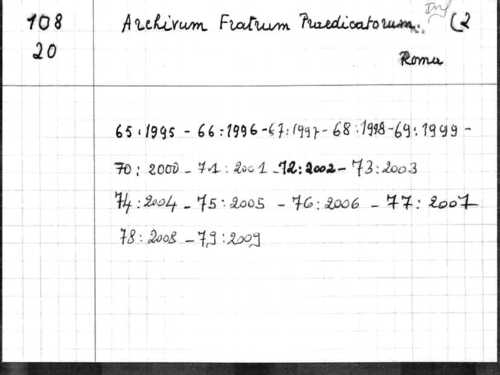 108 Archivum Fratrum Praedicatorum. (2
20 Roma
65:1995 - 66:1996 - 67:1997 - 68:1998 - 69:1999 -
70: 2000 - 71: 2001 - 72:2002 - 73:2003
74:2004 - 75:2005 - 76:2006 - 77:2007
78:2008 - 79:2009